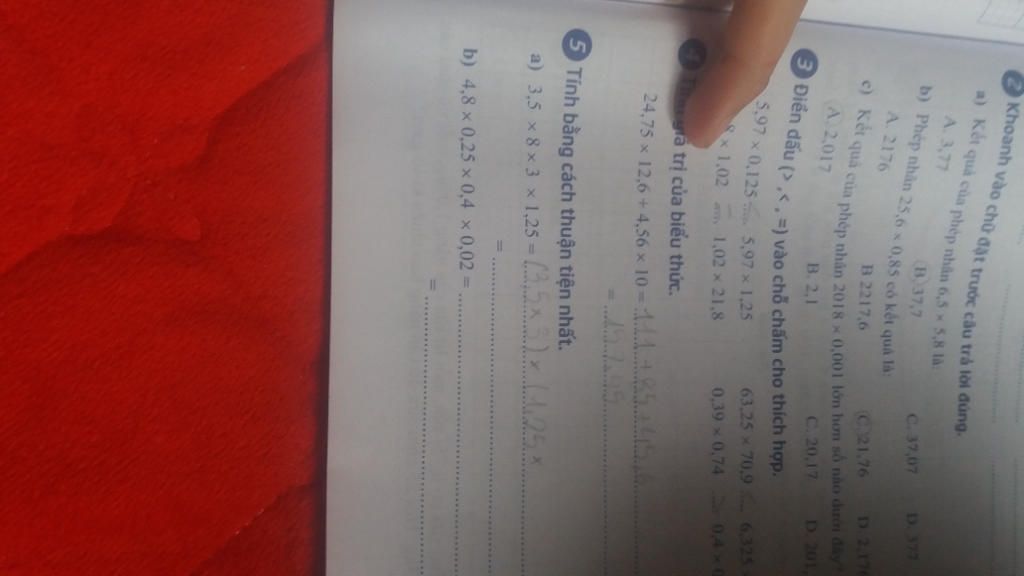 2 Khoanh vào chữ đặt trước câu trả lời đúng.
a) Kết quả của phép nhân 6,5 × 5,8 là:
A. 3,77 B. 37,7 C. 37,07 D. 377
b) Phép nhân 25,6 × 0,85 có kết quả là:
A. 2176 B 2217,6 C. 21,76 D 2,176
c) Kết quả của phép nhân 2018 × 0,001 lớn hơn số nào dưới đây
A. 2,017 B. 2,1 C. 20,17 D. 201,
3 Điền dấu (>, <, =) vào chỗ chấm cho thích hợp.
5,97 × 0,125 5,97 × 1,25 63,25 × 70,9 6,325
8 × 1,02 1,02 × 21,8 0,39 × 0,74 0,4 ×
4 giá trị của biểu thức.
24,75 × 12,6 ÷ 4,56 × 10 =
= 157,45
5 Tính bằng cách thuận tiện nhất.
a) 3,5 × 8 × 3 × 1,25 = (3,5 × 3) × (1,25 ×
=
b) 4,8 × 0,25 × 0,4 × 0,02 =
=